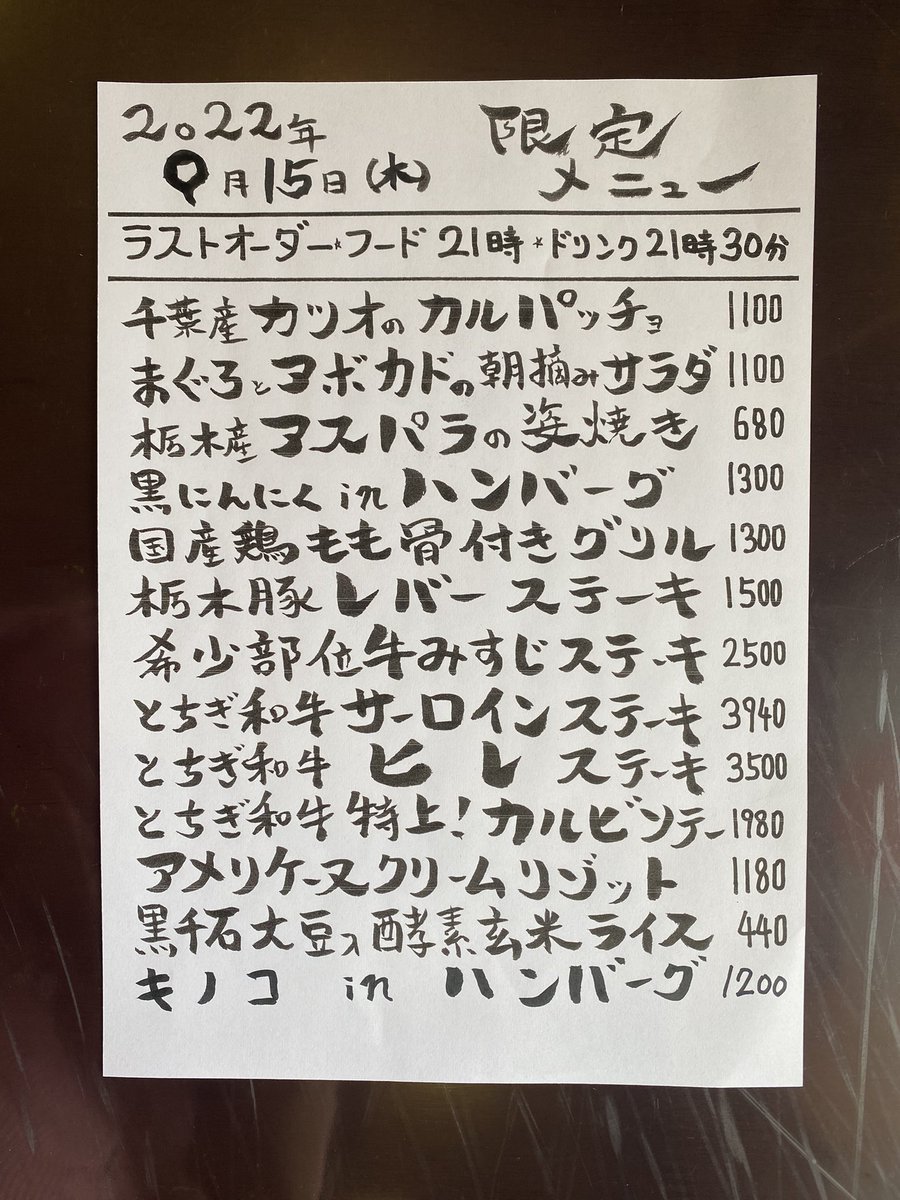 2022年 限定
月15日(水) メニュー
ラストオーダー*フード 21時*ドリンク21時30分
千葉産カツオのカルパッチョ 1100
まぐろとアボカドの朝摘みサラダ 1100
栃木産アスパラの姿焼き 680
黒にんにくinハンバーグ 1300
国産鶏もも骨付きグリル 1300
栃木豚レバーステーキ 1500
希少部位牛みすじステーキ 2500
とちぎ和牛サーロインステーキ 3940
とちぎ和牛ヒレステーキ 3500
とちぎ和牛特上!カルビソテー 1980
アメリケーヌクリームリゾット 1180
黒千石大豆入酵素玄米ライス 440
キノコ in ハンバーグ 1200